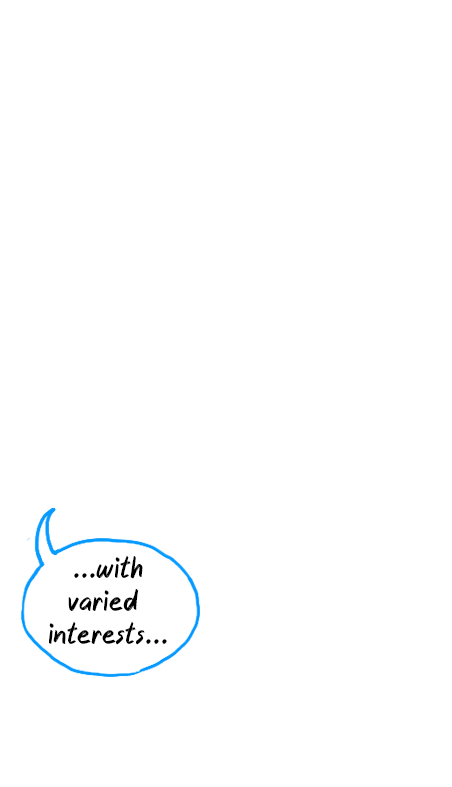 ...with
varied
interests...